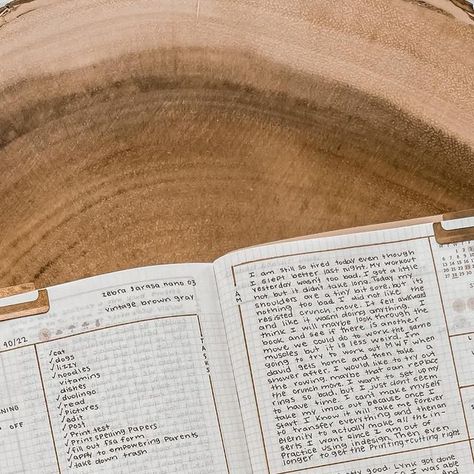 zebra sarasa nano 03
vintage brown gray
40/22
✓eat
✓dogs
✓lizzy
✓noodles
✓vitamins
✓dishes
✓duolingo
✓read
✓pictures
✓edit
✓post
✓Print test
✓Print spelling Papers
✓fill out FSA form
✓apply to empowering Parents
✓take down trash
TASKS
OFF
AM
I am still so tired today even though
I slept better last night. My workout
yesterday wasn't too bad. I got a little
hot but it didn't take long. Today my
shoulders are a tiny bit sore, but its
nothing too bad. I did not like the
resisted crunch move. It felt awkward
and like it wasn't doing anything.
I think I will maybe look through the
book and see if there is another
move we could do to work the same
muscles but it is less weird. I'm
going to try to work out MWF when
david gets home and then take a
shower after. I would like to try out
the rowing maybe that can replace
the crunch move. I want to set up my
rings so bad, but I just dont seem
to have time. I can't make myself
take my imac out because once I
start I know it will take me forever
to transfer everything and then an
eternity to actually make all the in-
serts I want since I am out of
practice using indesign. Then even
longer to get the Printing+cutting right.